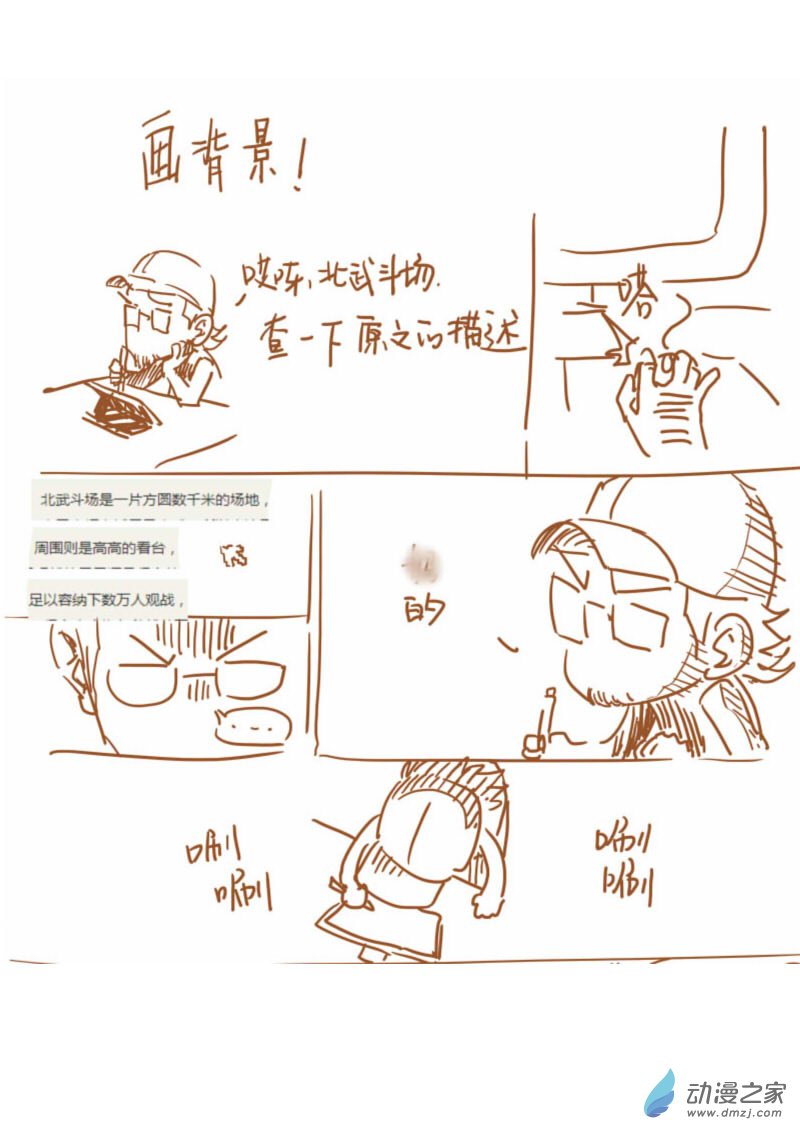 画背景！
哎呀，北武斗场.
查一下原文的描述
嗒
北武斗场是一片方圆数千米的场地，
周围则是高高的看台，
足以容纳下数万人观战，
的
唰
唰
唰
唰
动漫之家
www.dmzj.com